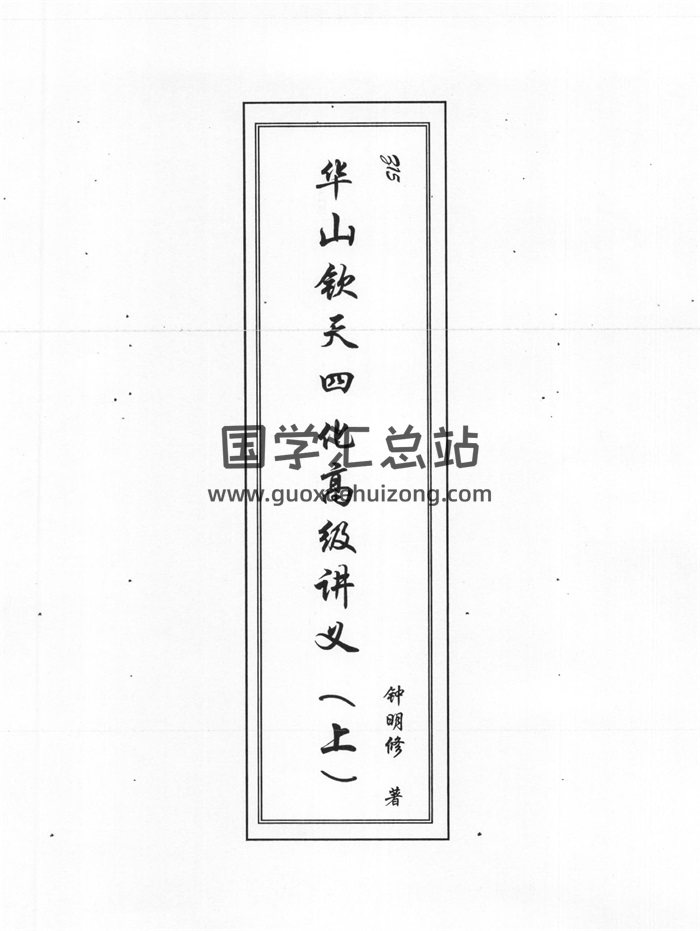 315
华山钦天四化高级讲义（上）
钟明修 著
国学汇总站
www.guoxuehuizong.com